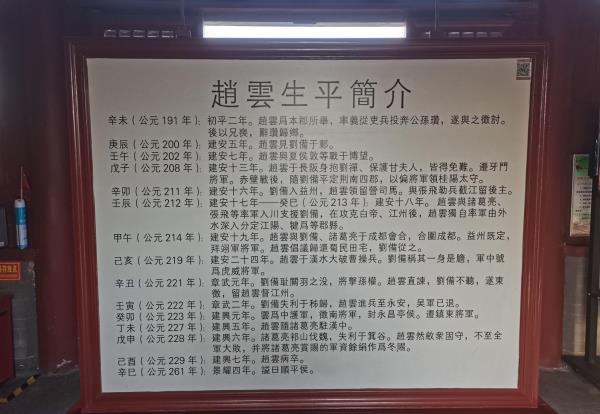 趙雲生平簡介
辛未（公元 191 年）：初平二年。趙雲爲本郡所舉，率義從吏兵投奔公孫瓚，遂與之徵討。
後以兄喪，辭瓚歸鄉。
庚辰（公元 200 年）：建安五年。趙雲見劉備于鄴。
壬午（公元 202 年）：建安七年。趙雲與夏侯敦等戰于博望。
戊子（公元 208 年）：建安十三年。趙雲于長阪身抱劉禪、保護甘夫人，皆得免難。遷牙門
將軍。赤壁戰後，隨劉備平定荆南四郡，以偏將軍領桂陽太守。
辛卯（公元 211 年）：建安十六年。劉備入益州，趙雲領留營司馬。與張飛勒兵截江留後主。
壬辰（公元 212 年）：建安十七年——癸巳（公元 213 年）：建安十八年。趙雲與諸葛亮、
張飛等率軍入川支援劉備，在攻克白帝、江州後，趙雲獨自率軍由外
水深入分定江陽、犍爲等郡縣。
甲午（公元 214 年）：建安十九年。趙雲與劉備、諸葛亮于成都會合，合圍成都。益州既定，
拜翊軍將軍。趙雲倡議歸還蜀民田宅，劉備從之。
己亥（公元 219 年）：建安二十四年。趙雲于漢水大破曹操兵。劉備稱其一身是膽，軍中號
爲虎威將軍。
辛丑（公元 221 年）：章武元年。劉備耻關羽之没，將擊孫權。趙雲直諫，劉備不聽，遂東
徵，留趙雲督江州。
壬寅（公元 222 年）：章武二年。劉備失利于秭歸，趙雲進兵至永安，吴軍已退。
癸卯（公元 223 年）：建興元年。雲爲中護軍，徵南將軍，封永昌亭侯。遷鎮東將軍。
丁未（公元 227 年）：建興五年。趙雲隨諸葛亮駐漢中。
戊申（公元 228 年）：建興六年。諸葛亮祁山伐魏，失利于箕谷。趙雲然斂衆固守，不至全
軍大敗，并將諸葛亮賞賜的軍資餘絹作爲冬賜。
己酉（公元 229 年）：建興七年。趙雲病卒。
辛巳（公元 261 年）：景耀四年。謚曰順平侯。